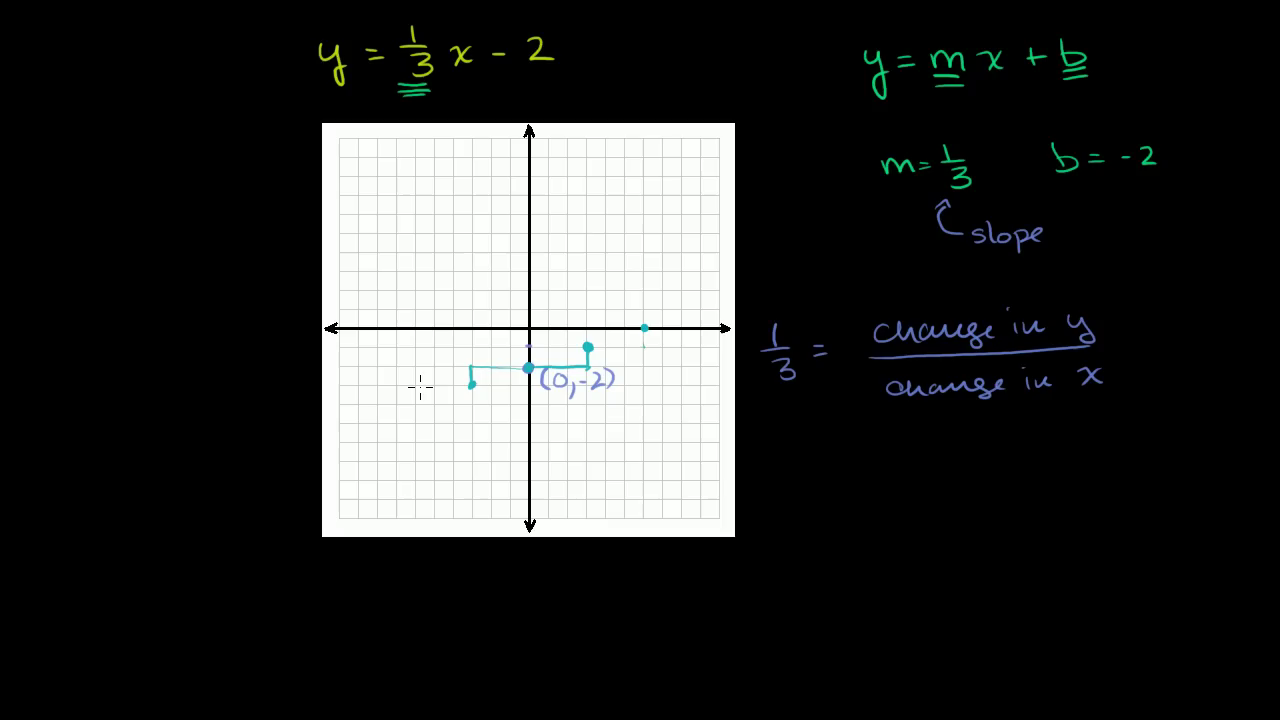 y = 1/3 x - 2
y = mx + b
m = 1/3 b = -2
slope
1/3 = change in y / change in x
(0, -2)